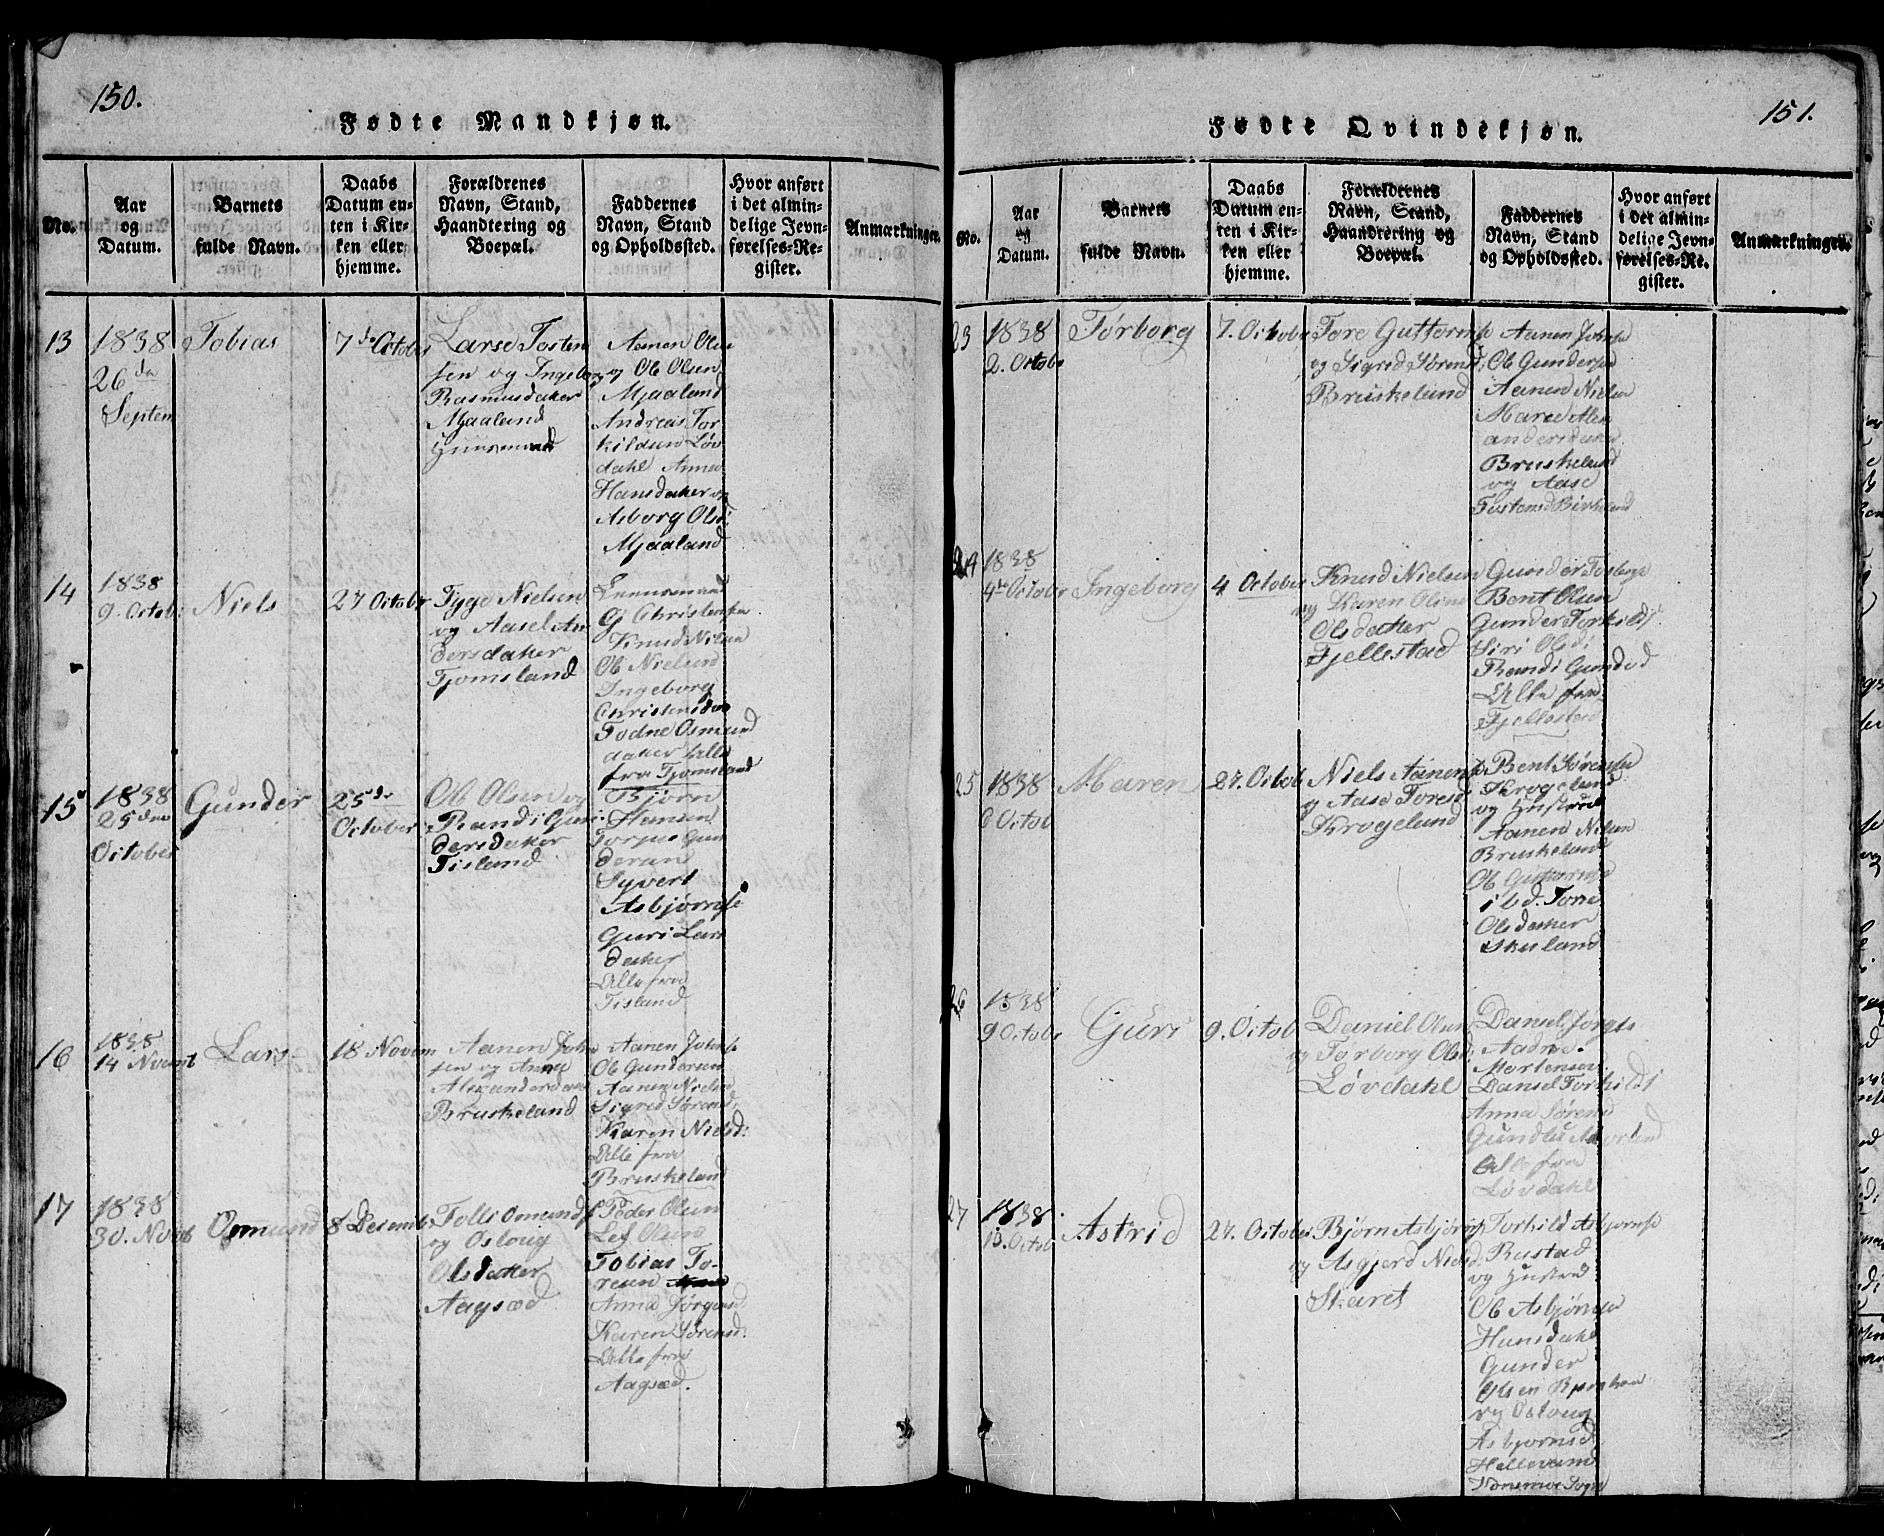 150.
Fødte Mandkjøn.
No.
Aar
og
Datum.
Barnets
fulde Navn.
Daabs
Datum en-
ten i Kir-
ken eller
hjemme.
Forældrenes
Navn, Stand,
Haandtering og
Boepæl.
Faddernes
Navn, Stand
og Opholdssted.
Hvor anført
i det almin-
delige Jevn-
førelses-Re-
gister.
Anmærkninger.
13
1838
26 de
Septem
Tobias
7 de Octobr
Larse Tosten
sen og Ingeborg
Rasmusdatter
Mjaaland
Huusmand
Aanen Olse
og Ob Olsen
Mjaaland
Andreas Tor
kildsen Løv
dahl Anna
Hansdatter og
Asborg Olsd:
Mjaaland
14
1838
9. Octobr
Niels
27 Octobr
Tyge Nielsen
og Aasel An
dersdatter
Tjomsland
G Christensen
Knud Nielsen
Ob Nielsen
Ingeborg
Christensdtr
Todne Osmund
datter alle
fra Tjomsland
15
1838
25 den
October
Gunder
25 de
October
Ob Olsen og
Randi Gun
dersdatter
Tisland
Bjørn
Hansen
Torjus Gun
dersen
Syvert
Asbjørnse
Guri Lars
datter
Alle fra
Tisland
16
1838
14 Novemb
Lars
18 Novem
Aanen John
sen og Anna
Alexandersdatr
Bruskeland
Aanen Johnse
Ob Gundersen
Aanen Nielsen
Sigrid Sørensd:
Karen Nielsd:
Alle fra
Bruskeland
17
1838
30. Novb
Osmund
8 Desemb
Tolli Omunds
og Osloug
Olsdatter
Aagsæd
Peder Olsen
Lef Olsen
Tobias To-
resen
Anna Jørgensd
Karen Sørensd:
Alle fra
Aagsæd.
151.
Fødte Qvindekjøn.
No.
Aar
og
Datum.
Barnets
fulde Navn.
Daabs
Datum en-
ten i Kir-
ken eller
hjemme.
Forældrenes
Navn, Stand,
Haandtering og
Boepæl.
Faddernes
Navn, Stand
og Opholdssted.
Hvor anført
i det almin-
delige Jevn-
førelses-Re-
gister.
Anmærkninger.
23
1838
2. Octobr
Tørborg
7. Octobr
Tore Guttormse
og Sigrid Sørensd:
Bruskeland
Aanen Johnse
Ob Gundersen
Aanen Nielsen
Maren Alex
andersdatter
Bruskeland
og Aase
Tostensd Birkeland
24
1838
4de Octobr
Ingeborg
4 October
Knud Nielsen
og Karen Olsen
Olsdatter
Fjellestad
Gunder Torbergs
Bent Olsen
Gunder Torkilds
Siri Olsd:
Randi Gundersd
Alle fra
Fjellestad
25
1838
6 Octob
Maren
27. Octob
Niels Aanense
og Aase Toresd
Krogeland
Bent Sørense
Krogeland
og Hustrue
Aanen Nielsen
Bruskeland
Ob Guttormse
ibd. Torre
Olsdatter
Skeiland
26
1838
9 Octobr
Guri
9. Octob
Daniel Olsen
og Torborg Olsd:
Løvdahl
Daniel Jørgs
Aadne
Mortensen
Daniel Torkilds
Anna Sørensd
Alle fra
Løvdahl
27
1838
13. Octob
Astrid
27. October
Bjørn Asbjørns
og Asgjerd Nielsd:
Skaret
Torkild Asbjørnse
Rustad
og Hustrue
Ob Asbjørnse
Hunsdahl
Gunder
Olsen
og Osloug
Asbjørnsd
Hellevand